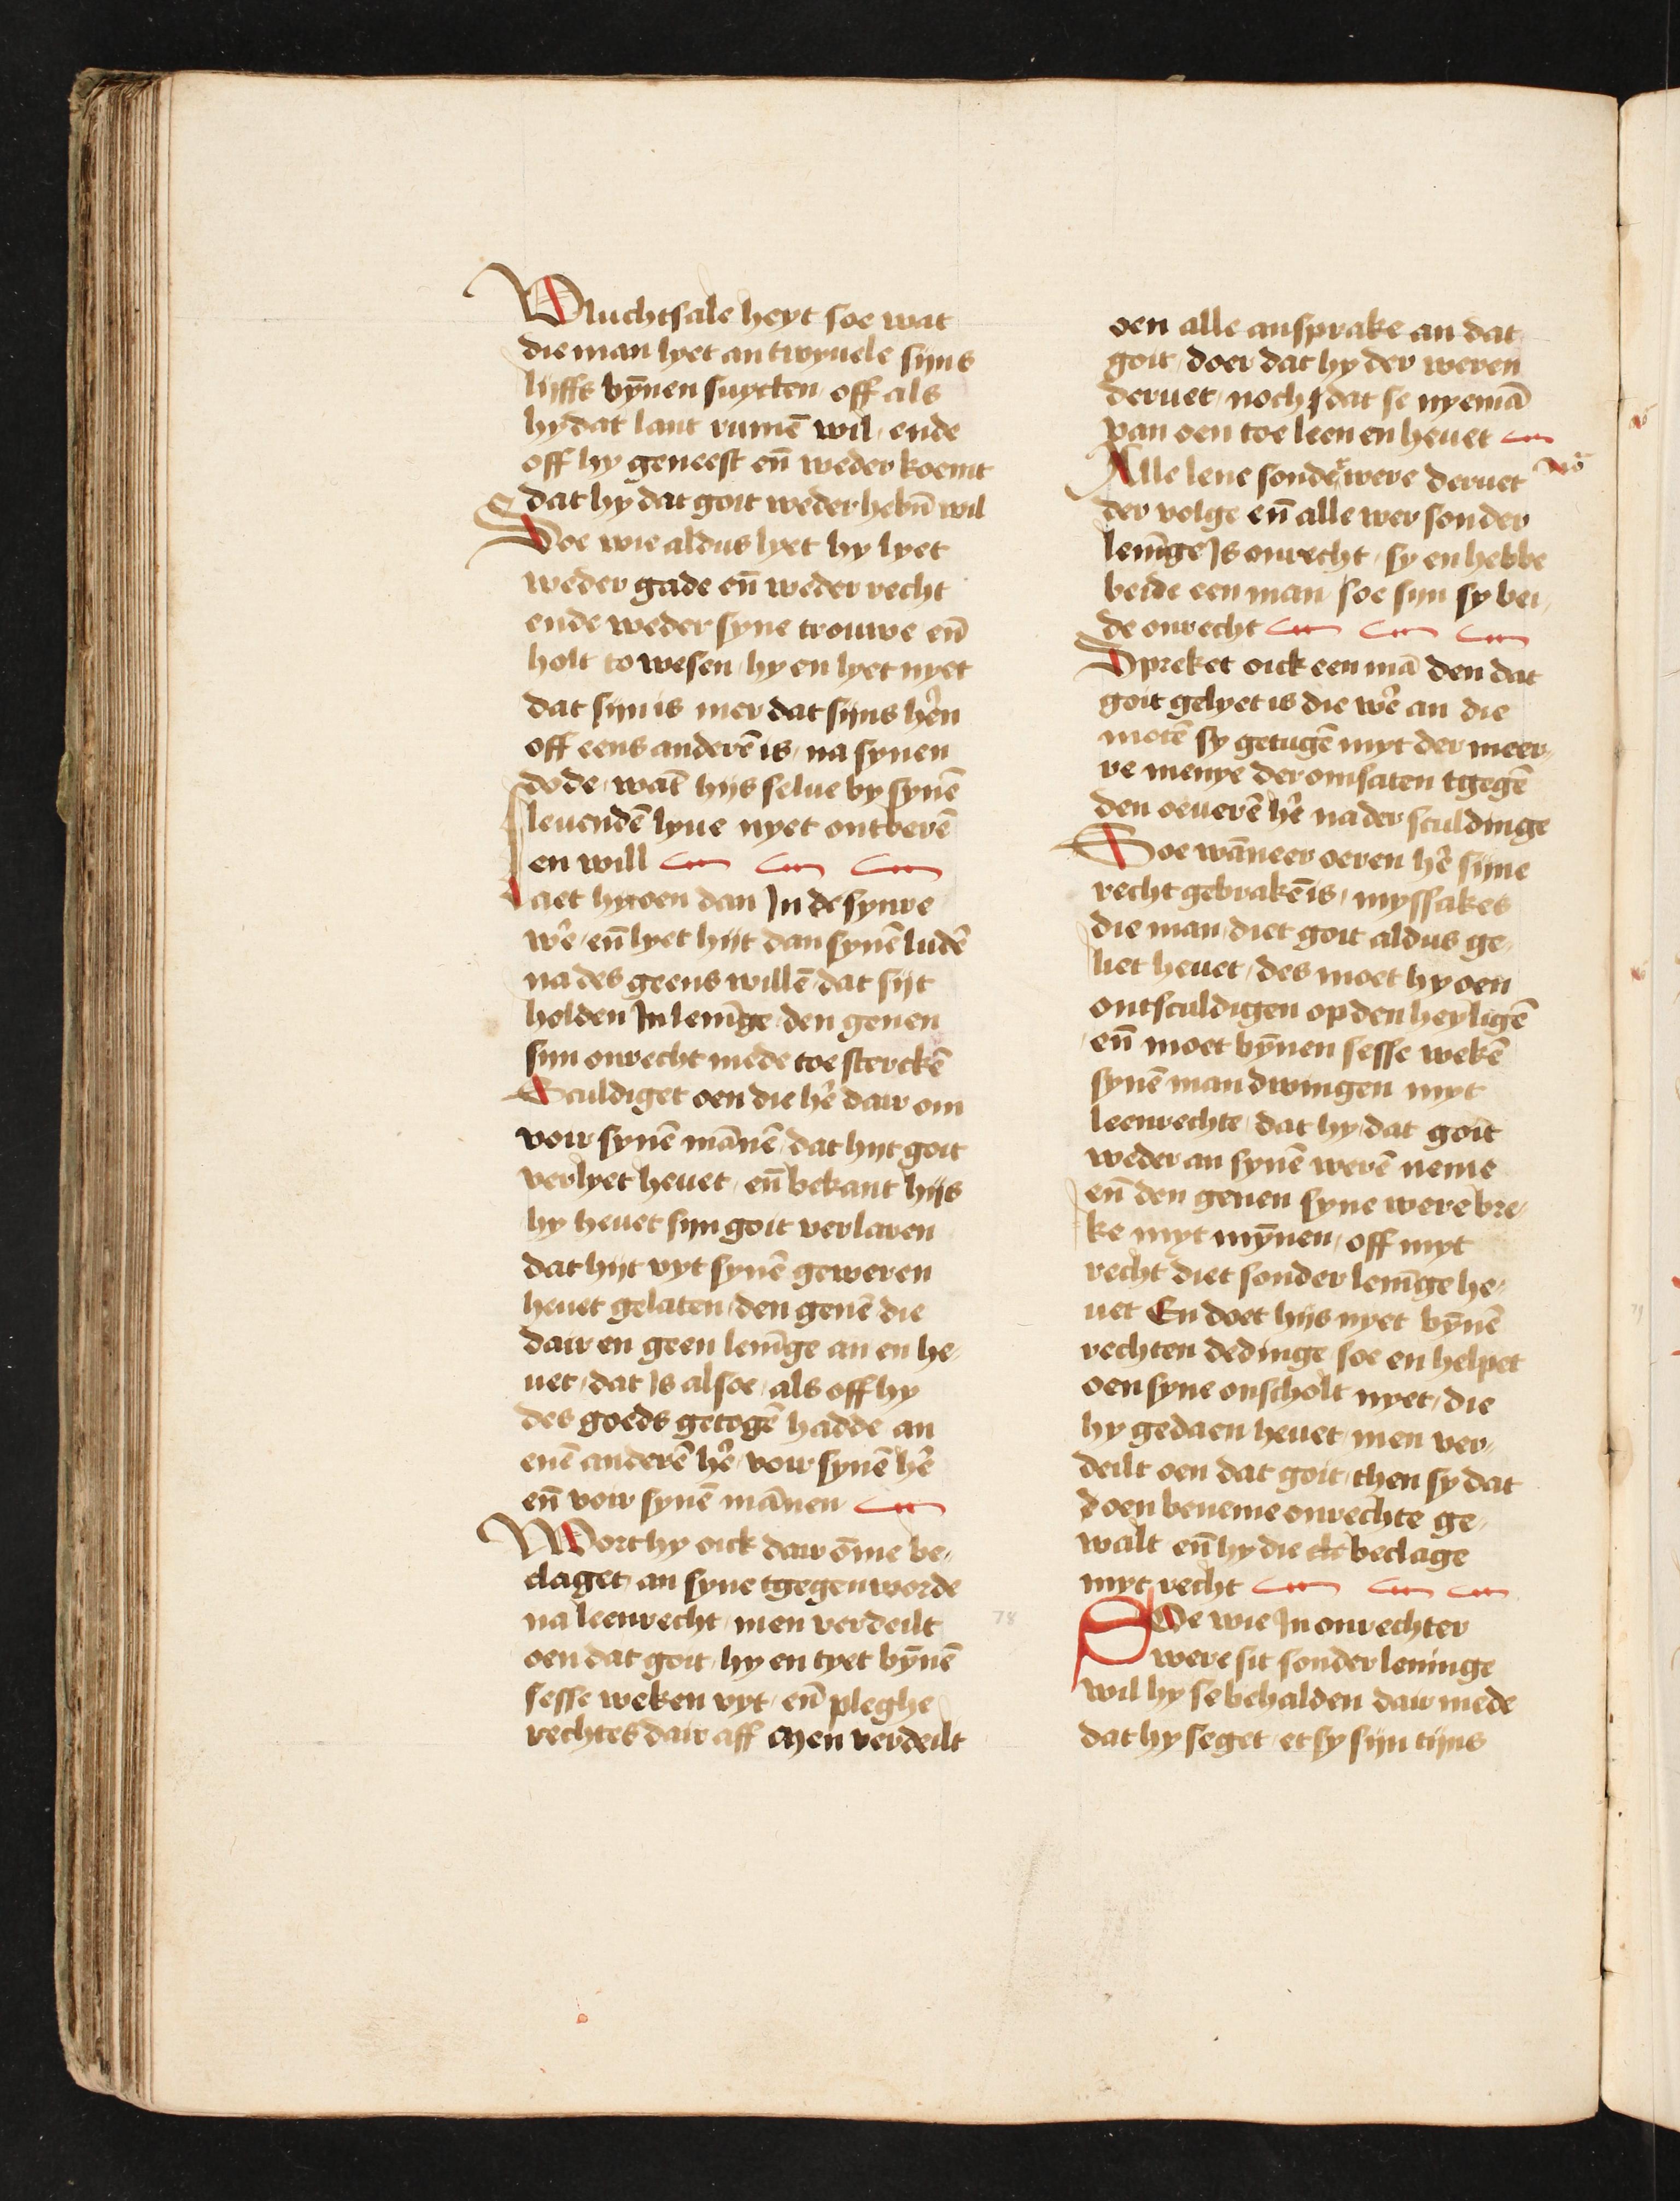 Vluchtsale heyt soe wat
die man lyet an twyuele sijns
lijffs bȳnen suycten / off als
hy dat lant rumē wil / ende
off hy geneest en̄ weder koemt
dat hy dat goit weder hebn̄ wil
Soe wie aldus lyet hy lyet
weder gade en̄ weder recht
ende weder syne trouwe en̄
holt to wesen / hy en lyet nyet
dat sijn is mer dat sijns hēn
off eens anderē is / na synen
dode / wāt hijs selue by synē
leuendē lyue nyet ontberē
en will
Laet hyt oen dan In de synre
wē / en̄ lyet hijt dan synē ludē
na des geens willē / dat sijt
holden In lenīge / den genen
sijn onrecht mede toe stercken̄
Sculdiget oen die hē dair om
voir synē mānē / dat hijt goit
verlyet heuet / en̄ bekant hijs
hy heuet sijn goit verlaren
dat hijt vyt synē geweren
heuet gelaten / den genē die
dair en geen lenīge an en he-
uet / dat Is alsoe / als off hy
des goeds getogē hadde an
enē anderē hē / voir synē hē
en̄ voir synē mānen
Wort hy oick dair ōme be-
claget / an syne tgegenworde
na leenrecht / men verdeilt
oen dat goit / hy en tyet bȳnē
sesse weken vyt / en̄ pleghe
rechtes dair aff Men verdeilt
oen alle ansprake an dat
goit / doer dat hy der weren
deruet / noch dat se nyemā
van oen toe leen en heuet
Alle lene sonder were deruet
der volge en̄ alle wer sonder
lenīge Is onrecht / sy en hebbe
beide een man / soe sijn sy bei-
de onrecht
Spreket oick een mā den dat
goit gelyet is die wē an die
motē sy getugē myt der meer-
re menye der omsaten tgegē
den oeuerē hē na der sculdinge
Soe wāneer oeren hē sijne
recht gebrakē is / myssakes
die man / diet goit aldus ge-
liet heuet / des moet hy oen
ontsculdigen op den heyligē
en̄ moet bȳnen sesse wekē
synē man dwingen myt
leenrechte / dat hy dat goit
weder an synē werē neme
en̄ den genen syne were bre-
ke myt mȳnen / off myt
recht diet sonder lenīge he-
uet En doet hijs nyet bȳnē
rechten dedinge / soe en helpet
oen syne onscholt nyet / die
hy gedaen heuet / men ver-
deilt oen dat goit / then sy dat
doen beneme onrechte ge-
walt en̄ hy die beclage
myt recht
78
Soe wie In onrechter
were sit sonder leninge
wil hy se behalden dair mede
dat hy seget / et sy sijn tijns